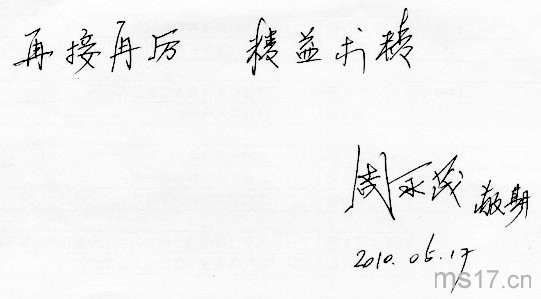 再接再厉 精益求精
周永茂 敬期
2010.05.17
ms17.cn